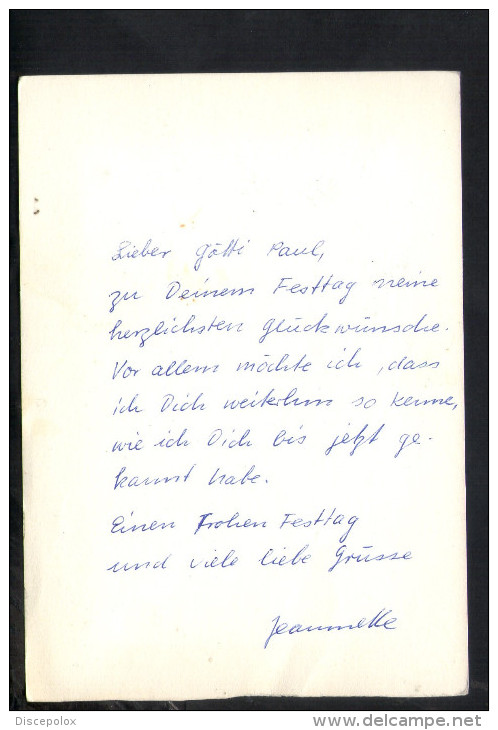 Lieber Götti Paul,
zu Deinem Festtag meine
herzlichsten Glückwünsche.
Vor allem möchte ich, dass
ich Dich weiterhin so kenne,
wie ich Dich bis jetzt ge-
kannt habe.
Einen Frohen Festtag
und viele liebe Grüsse
Jeannette
Discepolox
delcampe.net